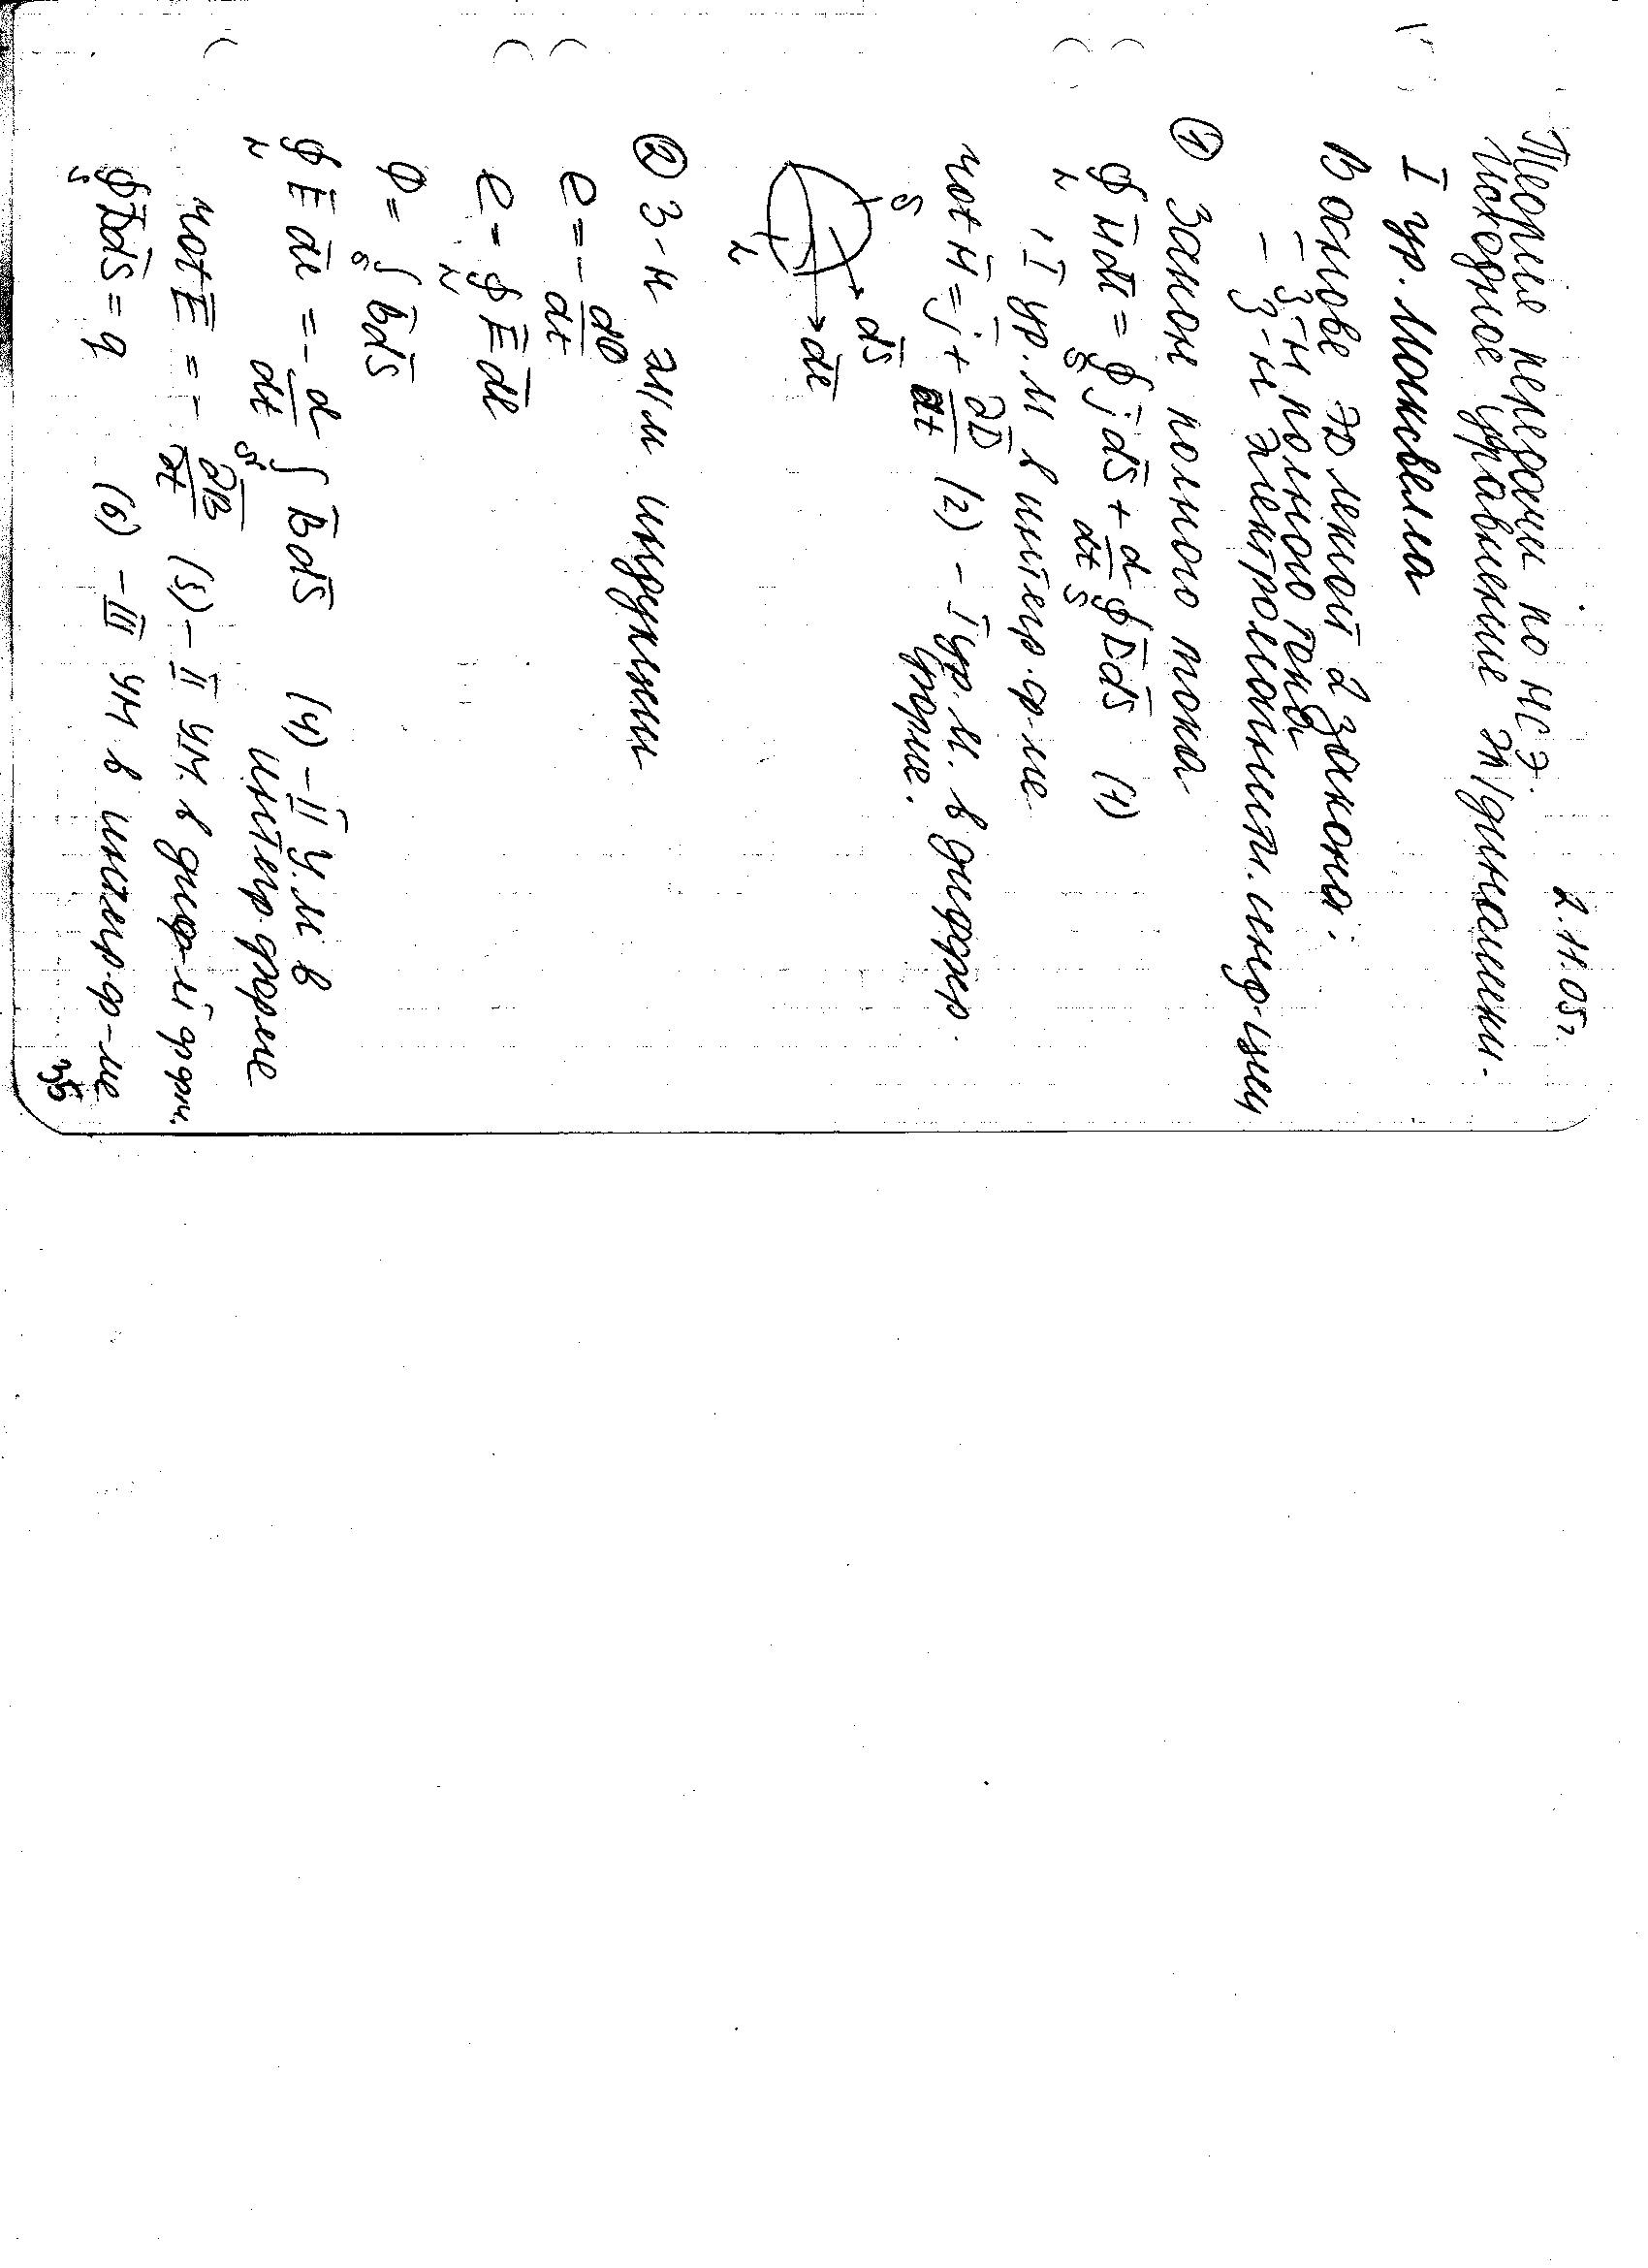 2.11.05г.
Теория передачи по НСЭ.
Исходное уравнение эл/динамики.
I ур. Максвелла
В основе ЭД лежат 2 закона:
– З-н полного тока
– З-н электромагнитн. инд-ции
① Закон полного тока
∮_L H̄ dl̄ = ∮_S j̄ ds̄ + d/dt ∮_S D̄ ds̄ (1)
I ур. М в интегр. ф-ме
rot H̄ = j̄ + ∂D̄/∂t (2) – I ур. М. в диффер.
форме.
S
ds̄
dl̄
L
② З-н эл/м индукции
e = – dΦ/dt
e = ∮_L Ē dl̄
Φ = ∫_S B̄ ds̄
∮_L Ē dl̄ = – d/dt ∫_S B̄ ds̄ (4) – II У.М в
интегр. форме
rot Ē = – ∂B̄/∂t (5) – II УМ. в диф-й форм.
∮_S D̄ ds̄ = q (6) – III УМ в интегр. ф-ме